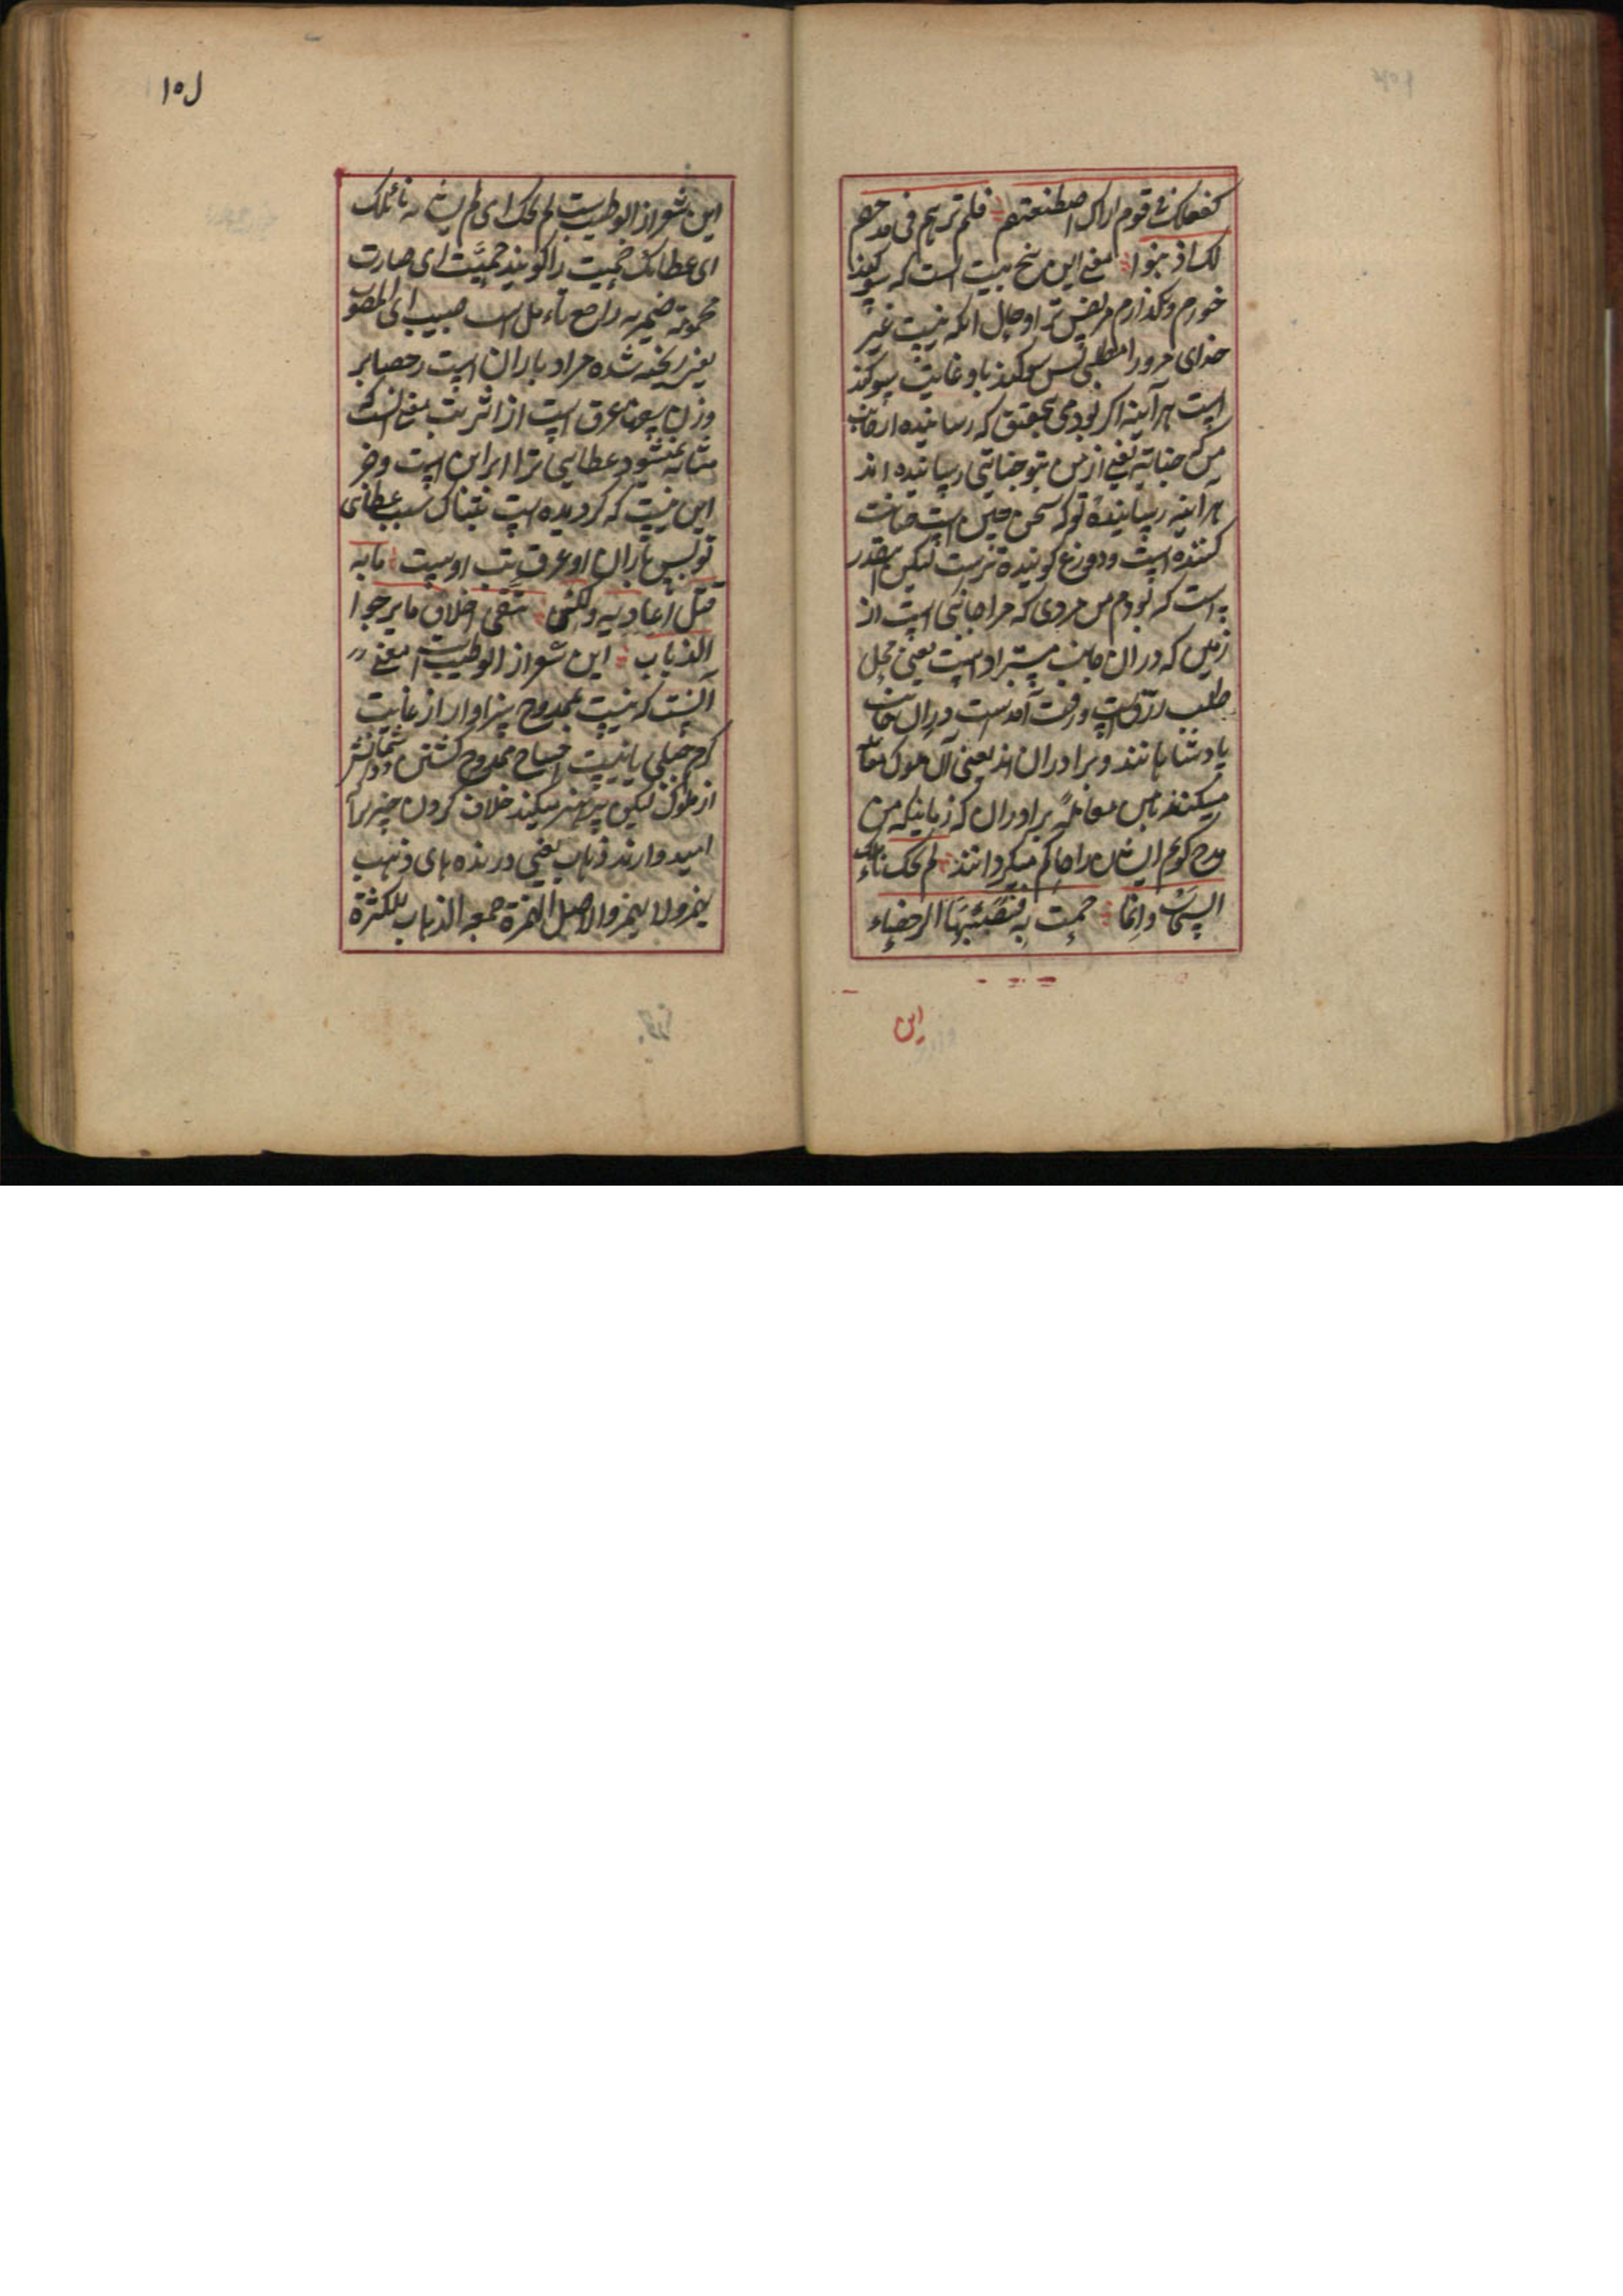 كفعلك في قوم اراك اصطنعتهم فلم ترهم في مدحهم
لك اذنبوا معنے این پنج بیت است که سوکند
خوردم ونگذارم مر نفس ترا وحال آنکه نیست غیر
خدای مرد را مطلبی پس سوکند باو غایت سوکند
است هر آینه اکر بودمی بتحقیق که رسانیده
من جنایتے یعنے از من بتو جنایتی رسانیده اند
هر آینه رساننده تو که سخن چین است خیانت
کننده است ودروغ کوینده ترست لیکن اینقدر
است که بودم من مردی که مرا جانبی است از
زمین که در آن جانب مستراد است یعنی محل
طلب رزق است ورفت آمدست در آن جانب
پادشاهانند وبرادران اند یعنی آن ملوک معامله
میکنند با من معامله برادران که زمانیکه من
مدح کویم ایشان را حاکم میکردانند لم يحك نائلك
السحاب وانما حمت به فصبيبها الرحضاء
این
۱۵۱
این شعر از ابو طیب ست لم یحک ای لم یشابه نائلک
ای عطائک حمیت را کویند حمیّت ای صارت
محمومة ضمیر به راجع بنائل است صبیب ای المصبوب
یعنے ریخته شده مراد باران است رحضا بر
وزن عرق است از اثر تب معنے آنست که
مشابه نمیشود عطایی ترا ابر این است وجز
این نیست که کردیده است تبناک بسبب عطای
تو پس باران او عرق تب اوست ما به
قتل اعادیه ولکن یتقی اخلاف ما یرجوا
الذیاب این شعر از ابو طیب است معنے
آنست که نیست بممدوح سزاوار از غایت
کرم جبلی یا نیست احتیاج ممدوح کشتن دشمنانش
از ملوک لیکن پرهیز میکند خلاف کردن چیزیرا که
امید دارند ذیاب یعنی درنده های
جمعه الذیاب للکثرة